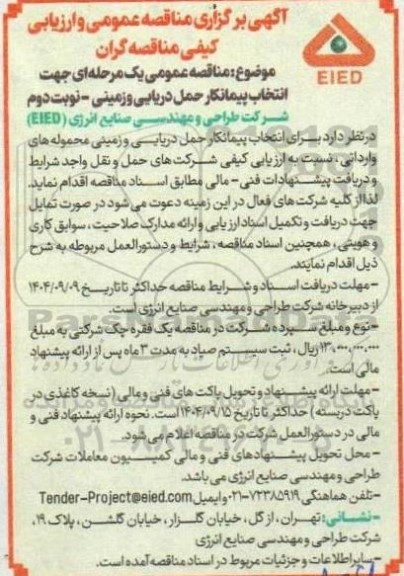 آگهی برگزاری مناقصه عمومی و ارزیابی
کیفی مناقصه گران
EIED
موضوع: مناقصه عمومی یک مرحله‌ای جهت
انتخاب پیمانکار حمل دریایی و زمینی - نوبت دوم
شرکت طراحی و مهندسی صنایع انرژی (EIED)
در نظر دارد برای انتخاب پیمانکار حمل دریایی و زمینی محموله‌های
وارداتی، نسبت به ارزیابی کیفی شرکت‌های حمل و نقل واجد شرایط
و دریافت پیشنهادات فنی - مالی مطابق اسناد مناقصه اقدام نماید.
لذا از کلیه شرکت‌های فعال در این زمینه دعوت می‌شود در صورت تمایل
جهت دریافت و تکمیل اسناد ارزیابی و ارائه مدارک صلاحیت، سوابق کاری
و هویتی، همچنین اسناد مناقصه، شرایط و دستورالعمل مربوطه به شرح
ذیل اقدام نمایند.
- مهلت دریافت اسناد و شرایط مناقصه حداکثر تا تاریخ ۱۴۰۴/۰۹/۰۹
از دبیرخانه شرکت طراحی و مهندسی صنایع انرژی است.
- نوع و مبلغ سپرده شرکت در مناقصه یک فقره چک شرکتی به مبلغ
ریال، ثبت سیستم صیاد به مدت ۳ ماه پس از ارائه پیشنهاد
مالی است.
- مهلت ارائه پیشنهاد و تحویل پاکت‌های فنی و مالی (نسخه کاغذی در
پاکت دربسته) حداکثر تا تاریخ ۱۴۰۴/۰۹/۱۵ است. نحوه ارائه پیشنهاد فنی و
مالی در دستورالعمل شرکت در مناقصه اعلام می‌شود.
- محل تحویل پیشنهادهای فنی و مالی کمیسیون معاملات شرکت
طراحی و مهندسی صنایع انرژی می باشد.
- تلفن هماهنگی ۷۲۳۸۵۹۱۹-۰۲۱ و ایمیل Tender-Project@eied.com
- نشانی: تهران، ازگل، خیابان گلزار، خیابان گلشن، پلاک ۱۹،
شرکت طراحی و مهندسی صنایع انرژی
- سایر اطلاعات و جزئیات مربوط در اسناد مناقصه آمده است.